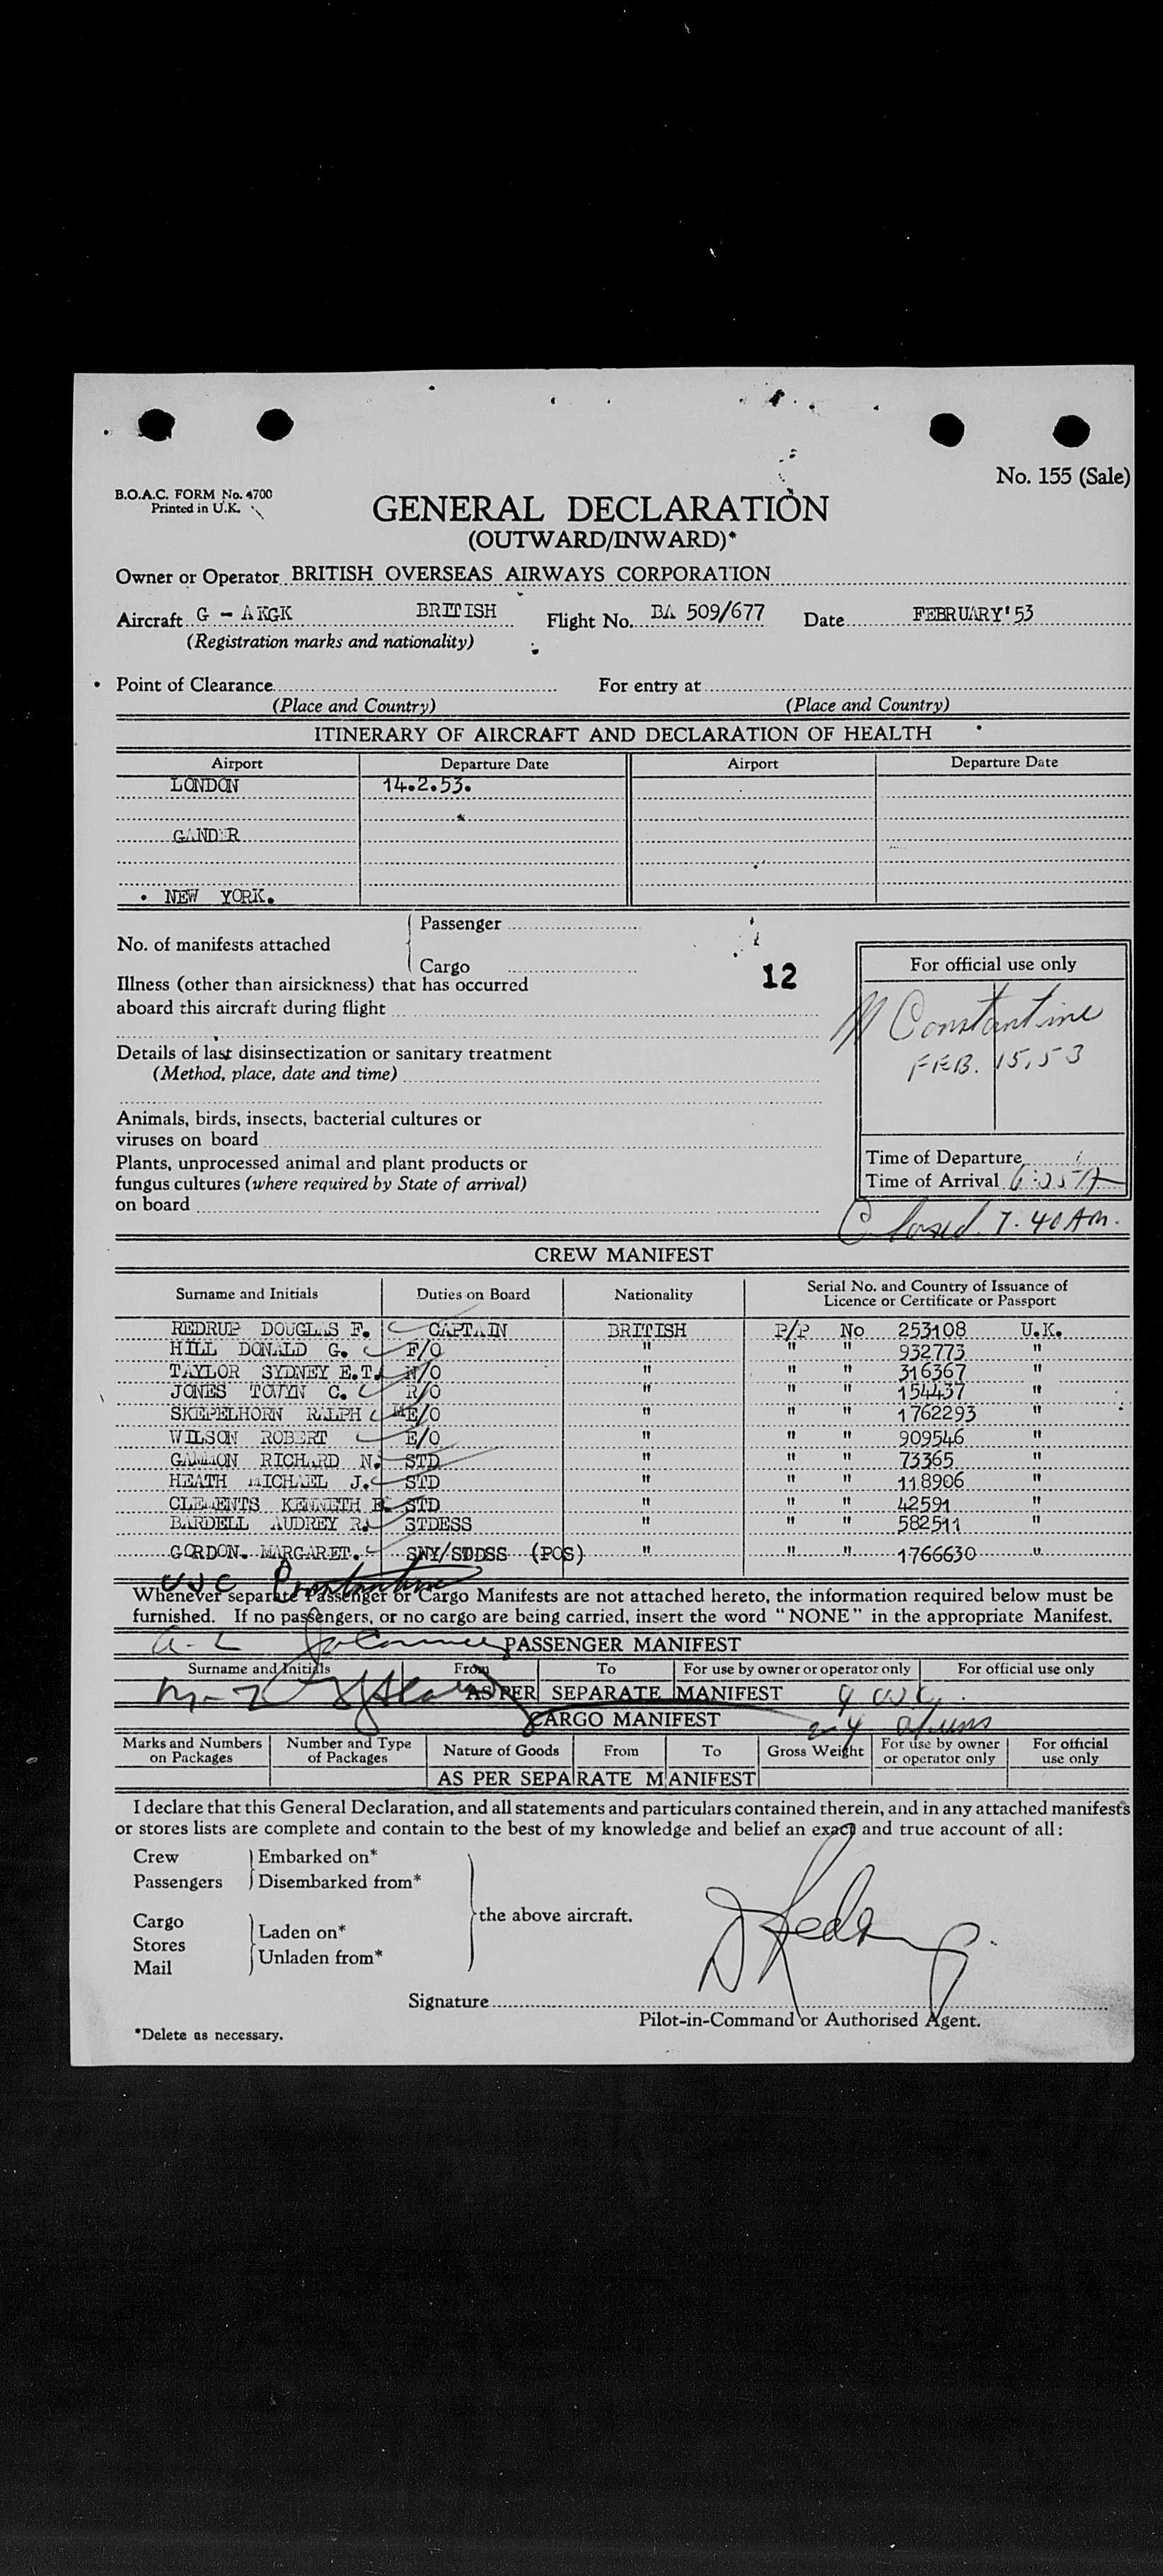 No. 155 (Sale)
B.O.A.C. FORM No. 4700
Printed in U.K.
GENERAL DECLARATION
(OUTWARD/INWARD)*
Owner or Operator BRITISH OVERSEAS AIRWAYS CORPORATION
Aircraft G - AKGK BRITISH Flight No. BA 509/677 Date FEBRUARY'53
(Registration marks and nationality)
Point of Clearance For entry at
(Place and Country) (Place and Country)
ITINERARY OF AIRCRAFT AND DECLARATION OF HEALTH
Airport Departure Date Airport Departure Date
LONDON 14.2.53.
GANDER
NEW YORK.
Passenger
No. of manifests attached
Cargo
12
For official use only
Illness (other than airsickness) that has occurred
aboard this aircraft during flight
Constantine
FEB. 15, 53
Details of last disinsectization or sanitary treatment
(Method, place, date and time)
Animals, birds, insects, bacterial cultures or
viruses on board
Plants, unprocessed animal and plant products or
fungus cultures (where required by State of arrival)
on board
Time of Departure
Time of Arrival 6:25 A
Closed 7.40 AM.
CREW MANIFEST
Surname and Initials Duties on Board Nationality Serial No. and Country of Issuance of Licence or Certificate or Passport
REDRUP DOUGLAS F. CAPTAIN BRITISH P/P No 253108 U.K.
HILL DONALD G. F/O " " " 932773 "
TAYLOR SYDNEY E.T. N/O " " " 316367 "
JONES TOWYN C. R/O " " " 154437 "
SKEPELHORN RALPH E/O " " " 1762293 "
WILSON ROBERT E/O " " " 909546 "
GAMMON RICHARD N. STD " " " 73365 "
HEATH MICHAEL J. STD " " " 118906 "
CLEMENTS KENNETH STD " " " 42591 "
BARDELL AUDREY R. STDESS " " " 582511 "
GORDON. MARGARET. SNY/SDDSS (POS) " " " 1766630 "
Whenever separate Passenger or Cargo Manifests are not attached hereto, the information required below must be
furnished. If no passengers, or no cargo are being carried, insert the word "NONE" in the appropriate Manifest.
PASSENGER MANIFEST
Surname and Initials From To For use by owner or operator only For official use only
AS PER SEPARATE MANIFEST
CARGO MANIFEST
Marks and Numbers on Packages Number and Type of Packages Nature of Goods From To Gross Weight For use by owner or operator only For official use only
AS PER SEPARATE MANIFEST
I declare that this General Declaration, and all statements and particulars contained therein, and in any attached manifests
or stores lists are complete and contain to the best of my knowledge and belief an exact and true account of all:
Crew Embarked on*
Passengers Disembarked from*
the above aircraft.
Cargo Laden on*
Stores
Mail Unladen from*
Signature
Pilot-in-Command or Authorised Agent.
*Delete as necessary.